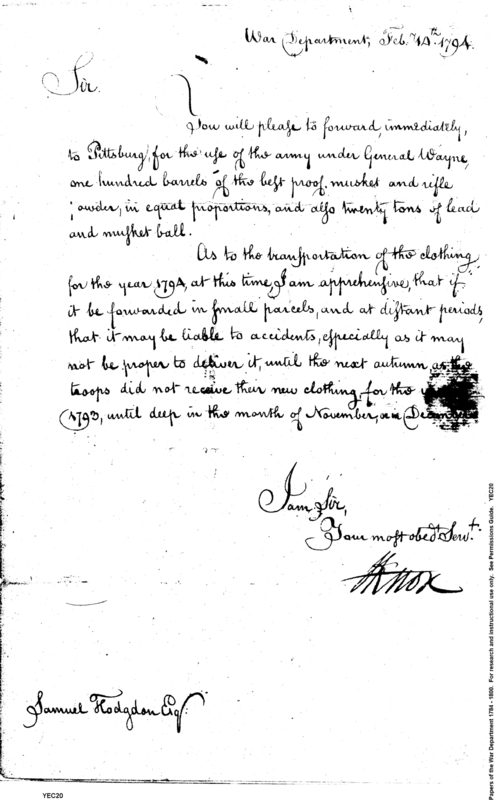 War Department, Feb. 1794.
Sir.
You will please to forward, immediately,
to Pittsburg, for the use of the army under General Wayne,
one hundred barrels of the best proof musket and rifle
powder, in equal proportions, and also twenty tons of lead
and musket ball.
As to the transportation of the clothing
for the year 1794, at this time, I am apprehensive, that if
it be forwarded in small parcels, and at distant periods,
that it may be liable to accidents, especially as it may
not be proper to deliver it, until the next autumn, as the
troops did not receive their new clothing, for the
1793, until deep in the month of November, or in
I am Sir,
Your most obedt. Servt.
HKnox
Samuel Hodgdon Esqr.
YEC20
Papers of the War Department 1784 - 1800. For research and instructional use only. See Permissions Guide. YEC20